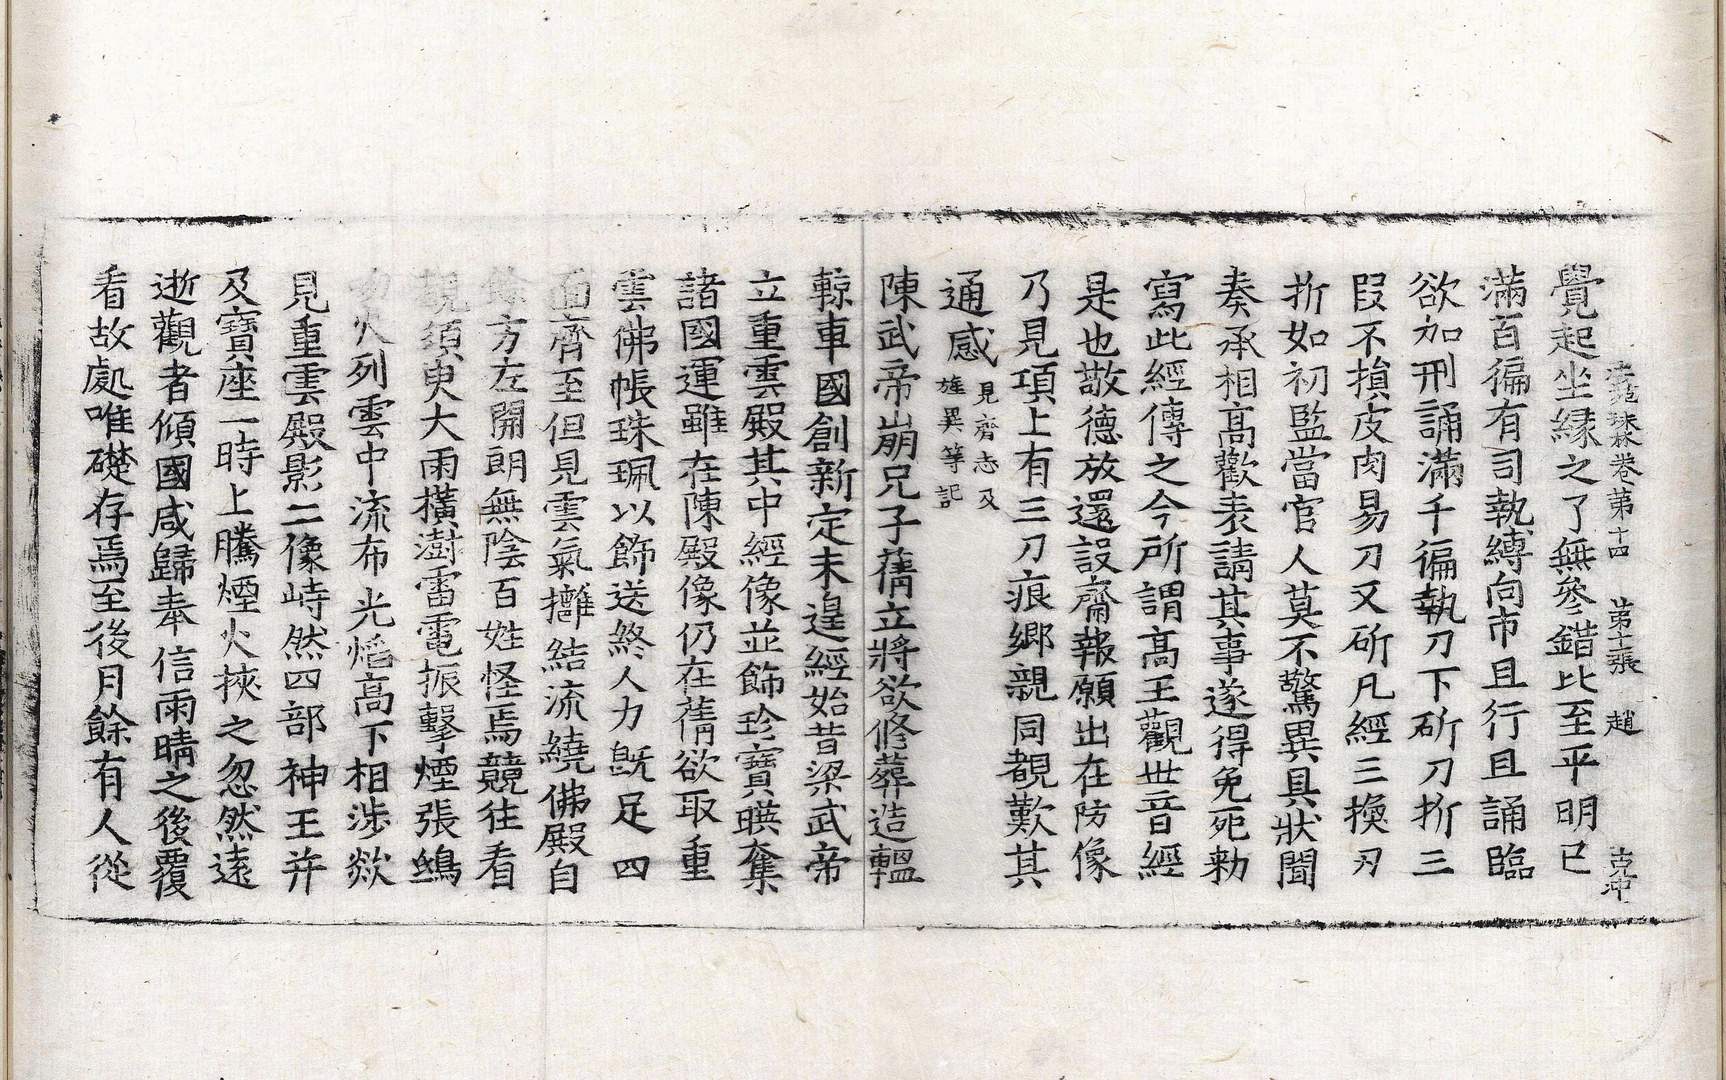 法苑珠林卷第十四 第十二張 趙 克中
覺起坐縁之了無參錯比至平明已
滿百徧有司執縛向市且行且誦臨
欲加刑誦滿千徧執刀下斫刀折三
段不損皮肉易刀又斫凡經三換刃
折如初監當官人莫不驚異具狀聞
奏承相高歡表請其事遂得免死勑
寫此經傳之今所謂高王觀世音經
是也敬德放還設齋報願出在防像
乃見項上有三刀痕郷親同覩歎其
通感見齊志及旌異等記
陳武帝崩兄子蒨立將欲修葬造轀
輬車國創新定未遑經始昔梁武帝
立重雲殿其中經像並飾珍寶暎奪
諸國運雖在陳殿像仍在蒨欲取重
雲佛帳珠珮以飾送終人力既足四
面齊至但見雲氣擁結流繞佛殿自
餘方左開朗無陰百姓怪焉競往看
覩須臾大雨橫澍雷電振擊煙張鴟
吻火列雲中流布光焰高下相涉欻
見重雲殿影二像峙然四部神王并
及寶座一時上騰煙火挾之忽然遠
逝觀者傾國咸歸奉信雨晴之後覆
看故處唯礎存焉至後月餘有人從